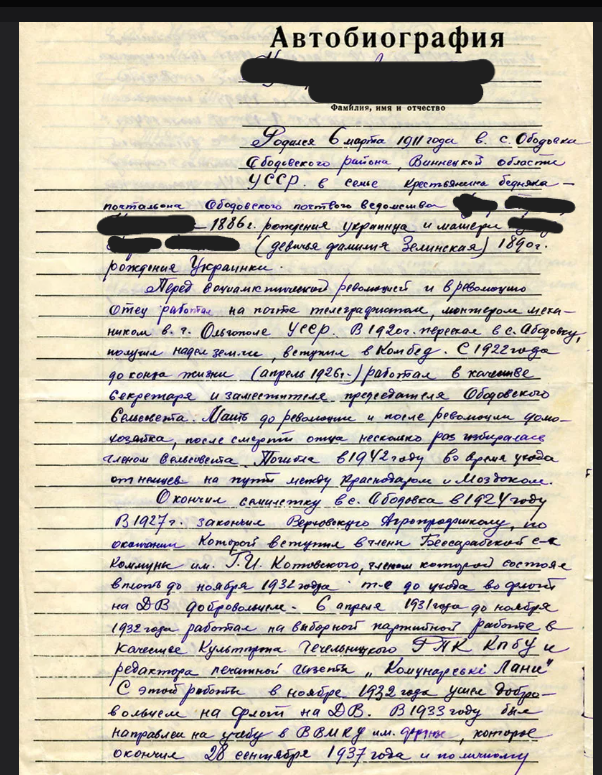 Автобиография
Фамилия, имя и отчество
Родился 6 марта 1911 года в. с. Ободовка
Ободовского района, Винницкой области
УССР. в семье крестьянина бедняка —
почтальона Ободовского ведомства
1886 г. рождения украинца и матери
(девичья фамилия Зелинская) 1890 г.
рождения Украинки.
Перед социалистической революцией и в революцию
Отец работал на почте телеграфистом, монтером меха-
ником в. г. Ольгополе УССР. В 1920 г. переехал в с. Ободовку,
получил надел земли, вступил в Комбед. С 1922 года
до конца жизни (апрель 1926 г.) работал в качестве
секретаря и заместителя председателя Ободовского
Сельсовета. Мать до революции и после революции домо-
хозяйка, после смерти отца несколько раз избиралась
членом Сельсовета. Погибла в 1942 году во время ухода
от немцев на пути между Краснодаром и Моздоком.
Окончил семилетку в с. Ободовка в 1924 году
В 1927 г. закончил Верховскую Агропрофшколу, по
окончании которой вступил в члены Бессарабской с-х
Коммуны им. Г. И. Котовского, членом которой состоял
вплоть до ноября 1932 года т-е до ухода во флот
на ДВ добровольцем. 6 апреля 1931 года до ноября
1932 года работал на выборной партийной работе в
качестве Культпропа Чечельницкого РПК КПбУ и
редактора печатной газеты „Комунарські Лани"
С этой работы в ноябре 1932 года ушел добро-
вольцем на флот на ДВ. В 1933 году был
направлен на учебу в ВВМКУ им. Фрунзе, которое
окончил 28 сентября 1937 года и по личному